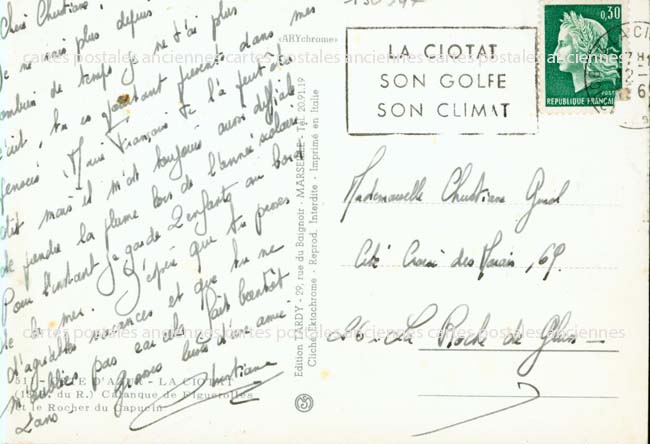 Chère Christiane,
Je ne sais plus depuis
combien de temps je ne t'ai plus
écrit. tu es pourtant présente dans mes
pensées. Marie Françoise te l'a peut-être
dit mais il m'est toujours aussi difficile
de prendre la plume lors de l'année scolaire
Pour l'instant je garde 2 enfants au bord
de la mer. J'espère que tu passes
d'agréables vacances et que tu ne
m'oublies pas car cela fait bientôt
2 ans. Grosses bises d'une amie
Christiane
(ARYchrome)
Edition TARDY - 29, rue du Baignoir - MARSEILLE - Tél. 20.91.19
Cliché Ektachrome - Reprod. Interdite - Imprimé en Italie
511 - D'A - LA CIOTAT
(B. du R.) Calanque de Figuerolles
et le Rocher du Capucin
LA CIOTAT
SON GOLFE
SON CLIMAT
0,30
REPUBLIQUE FRANÇAISE
Mademoiselle Christiane
Cité Croix des Marais, 69.
La Roche de Glun
cartes postales anciennes cartes postales anciennes
cartes postales anciennes cartes postales anciennes
cartes postales anciennes cartes postales anciennes
cartes postales anciennes cartes postales anciennes